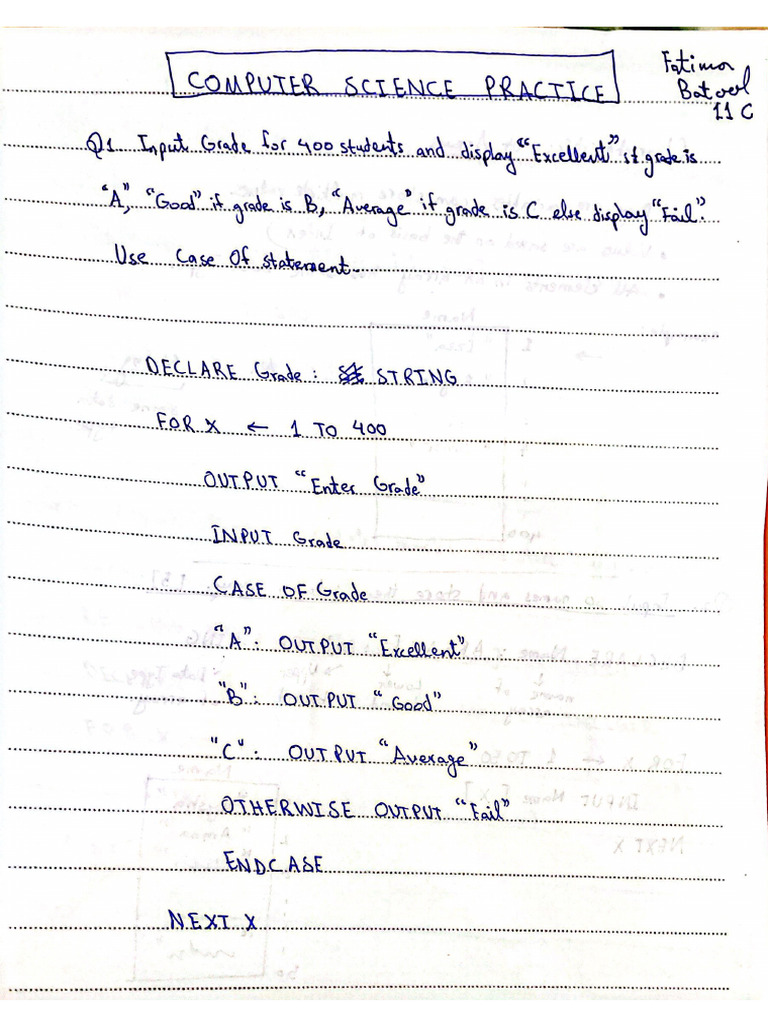 COMPUTER SCIENCE PRACTICE
Fatima
Batool
11 C
Q1 Input Grade for 400 students and display "Excellent" if grade is
"A", "Good" if grade is B, "Average" if grade is C else display "Fail".
Use Case Of statement.
DECLARE Grade: STRING
FOR X ← 1 TO 400
OUTPUT "Enter Grade"
INPUT Grade
CASE OF Grade
"A": OUTPUT "Excellent"
"B": OUTPUT "Good"
"C": OUTPUT "Average"
OTHERWISE OUTPUT "Fail"
ENDCASE
NEXT X